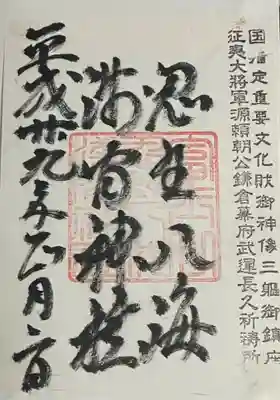 国指定重要文化財御神像三躯御鎮座
征夷大將軍源頼朝公鎌倉幕府武運長久祈祷所
八海
浅間神社
平成廿九年